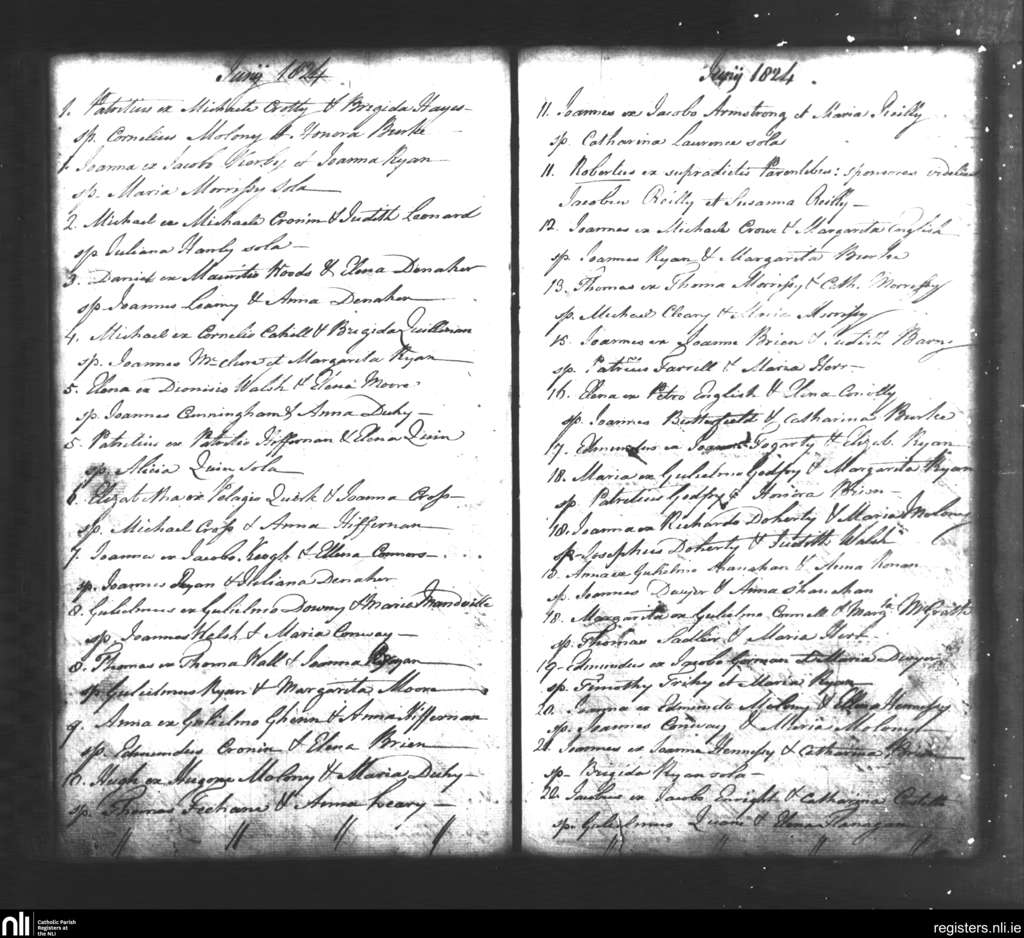 Junij 1824
1. Patritius ex Michaele Crotty & Brigida Hayes—
sp. Cornelius Molony & Honora Burke
1. Joanna ex Jacobo et Joanna Ryan
sp. Maria Morrissy sola—
2. Michael ex Michaele Cronin & Judith Leonard
sp. Juliana Hanly sola—
3. Daniel ex Mauritio Woods & Elena Denaher
sp. Joannes Leamy & Anna Denaher
4. Michael ex Cornelio Cahill & Brigida Quillinan
sp. Joannes McClure et Margarita Ryan
5. Elena ex Dionisio Walsh & Elena Moore
sp. Joannes Cunningham & Anna Duhy—
5. Patritius ex Patritio Hiffernan & Elena Quin
sp. Alicia Quin sola
6. Pelagio Quirk & Joanna Cross—
sp. Michael Cross & Anna Hiffernan
7. Joanna ex Jacobo Keogh & Ellena Connors—
sp. Joannes Ryan & Juliana Denaher
8. Gulielmus ex Gulielmo Downy & Maria Mandville
sp. Joannes Walsh & Maria Conway—
8. Thomas ex Thoma Wall & Joanna
sp. Gulielmus Ryan & Margarita Moore
9. Anna ex Gulielmo Ghinn & Anna Hiffernan
sp. Edmundus Cronin & Elena Brien
10. Hugh ex Hugone Molony & Maria Duhy—
sp. Thomas Feehane & Anna Leary—
" " " "
Junij 1824.
11. Joannes ex Jacobo Armstrong et Maria Reilly
sp. Catharina Laurence sola
11. Robertus ex supradictis Parentibus: sponsores videlicet
Jacobus Reilly et Susanna Reilly—
12. Joannes ex Michaele Crowe & Margarita English
sp. Joannes Ryan & Margarita Burke
13. Thomas ex Thoma Morrissy & Cath. Morrissy
sp. Michael Cleary & Maria Morrissy
15. Joannes ex Joanne Brien & Judith
sp. Patritius Farrell & Maria Herr—
16. Elena ex Petro English & Elena Conolly
sp. Joannes Butterfield & Catharina Burke
17. Edmundus ex Fogarty & Elizab. Ryan
18. Maria ex Gulielmo Godfry & Margarita Ryan
sp. Patritius Godfry & Honora Brien—
18. Joanna ex Richardo Doherty & Maria Molony
sp. Josephus Doherty & Judith Walsh
18. Anna ex Gulielmo Shanahan & Anna Ronan
sp. Joannes Dwyer & Anna Shanahan
18. Margarita ex Gulielmo Connell & Margta McGrath
sp. Thomas Sadlier & Maria Hert
19. Edmundus ex Jacobo Gorman et Maria Dwyer
sp. Timothy et Maria Ryan
20. Joanna ex Edmundo Molony & Ellena Hennessy
sp. Joannes Conway & Maria Molony
Joannes ex Joanne Hennessy & Catharina
sp- Brigida Ryan sola—
20. Jacobus ex Jacobo Enright & Catharina Costello
sp. Gulielmus & Elena Flanagan
" " " "
nli
Catholic Parish
Registers at
the NLI
registers.nli.ie